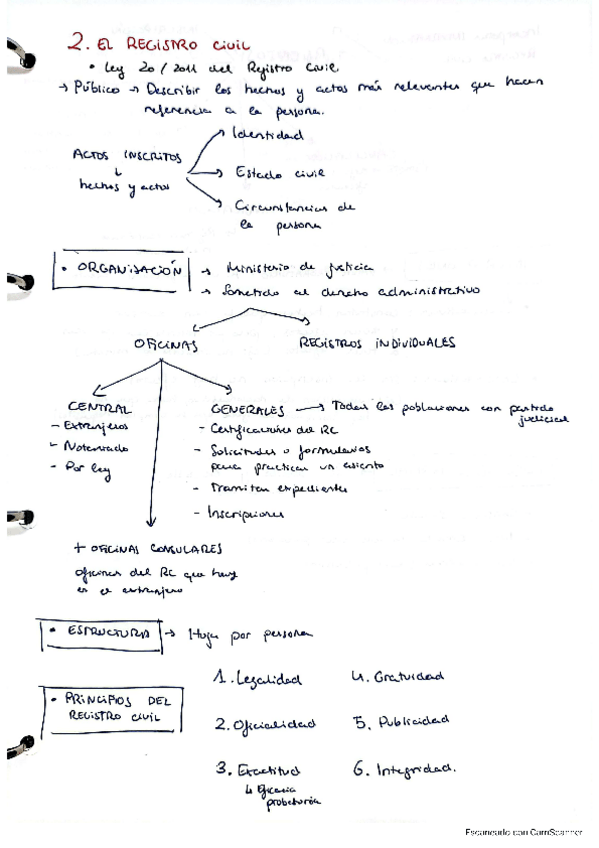 2. EL REGISTRO CIVIL
• Ley 20/2011 del Registro Civil
→ Público → Describir los hechos y actos más relevantes que hacen
referencia a la persona.
ACTOS INSCRITOS
↓
hechos y actos
→ Identidad
→ Estado civil
→ Circunstancias de
la persona
• ORGANISACIÓN
→ Ministerio de justicia
→ Sometido al derecho administrativo
OFICINAS
REGISTROS INDIVIDUALES
CENTRAL
- Extranjeros
- Notariado
- Por ley
GENERALES → Todas las poblaciones con partido
judicial
- Certificaciones del RC
- Solicitudes o formularios
para practicar un asiento
- Tramitan expedientes
- Inscripciones
+ OFICINAS CONSULARES
oficinas del RC que hay
en el extranjero
• ESTRUCTURA → Hoja por persona
• PRINCIPIOS DEL
REGISTRO CIVIL
1. Legalidad
2. Oficialidad
3. Exactitud
↳ Eficacia
probatoria
4. Gratuidad
5. Publicidad
6. Integridad.
Escaneado con CamScanner